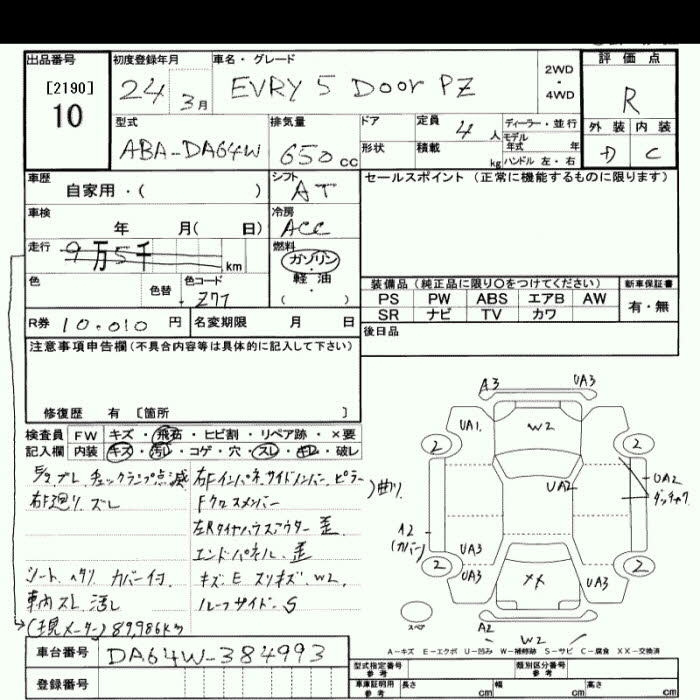 出品番号
[2190]
10
初度登録年月
24 3月
車名・グレード
EVRY 5 Door PZ
2WD
・
4WD
評価点
R
外装 内装
D C
型式
ABA-DA64W
排気量
650 cc
ドア
形状
定員
4人
積載
kg
ディーラー・並行
モデル
年式 年
ハンドル 左・右
車歴
自家用・( )
シフト
AT
セールスポイント (正常に機能するものに限ります)
車検
年 月( 日)
冷房
ACC
走行
9万5千 km
燃料
ガソリン
・
軽油
( )
色
色替
色コード
Z77
R券 10.010 円
名変期限 月 日
装備品(純正品に限り〇をつけてください)
PS PW ABS エアB AW
SR ナビ TV カワ
新車保証書
有・無
後日品
注意事項申告欄(不具合内容等は具体的に記入して下さい)
修復歴 有 [箇所 ]
検査員
記入欄
FW キズ・飛石・ヒビ割・リペア跡・×要
内装 キズ・汚レ・コゲ・穴・スレ・キレ・破レ
チェックランプ点滅
右F廻り ズレ
右Fインパネ サイドメンバー ピラー
Fクロスメンバー
)曲り
左Rタイヤハウスアウター 歪
エンドパネル 歪
シート ヘタリ カバー付
キズ E スリキズ W2
車内スレ 汚レ
ルーフサイド S
(現メーター) 89,986km
A3 UA3
UA1 W2 UA3
2 2
UA2
UA2
ダッチャク
A2
(カバー)
UA3
2 2
UA3 XX UA3
スペア
A2 W2
A-キズ E-エクボ U-凹み W-補修跡 S-サビ C-腐食 XX-交換済
車台番号
DA64W-384993
登録番号
型式指定番号
参考
類別区分番号
参考
車庫証明用
参考
長さ cm 幅 cm 高さ cm